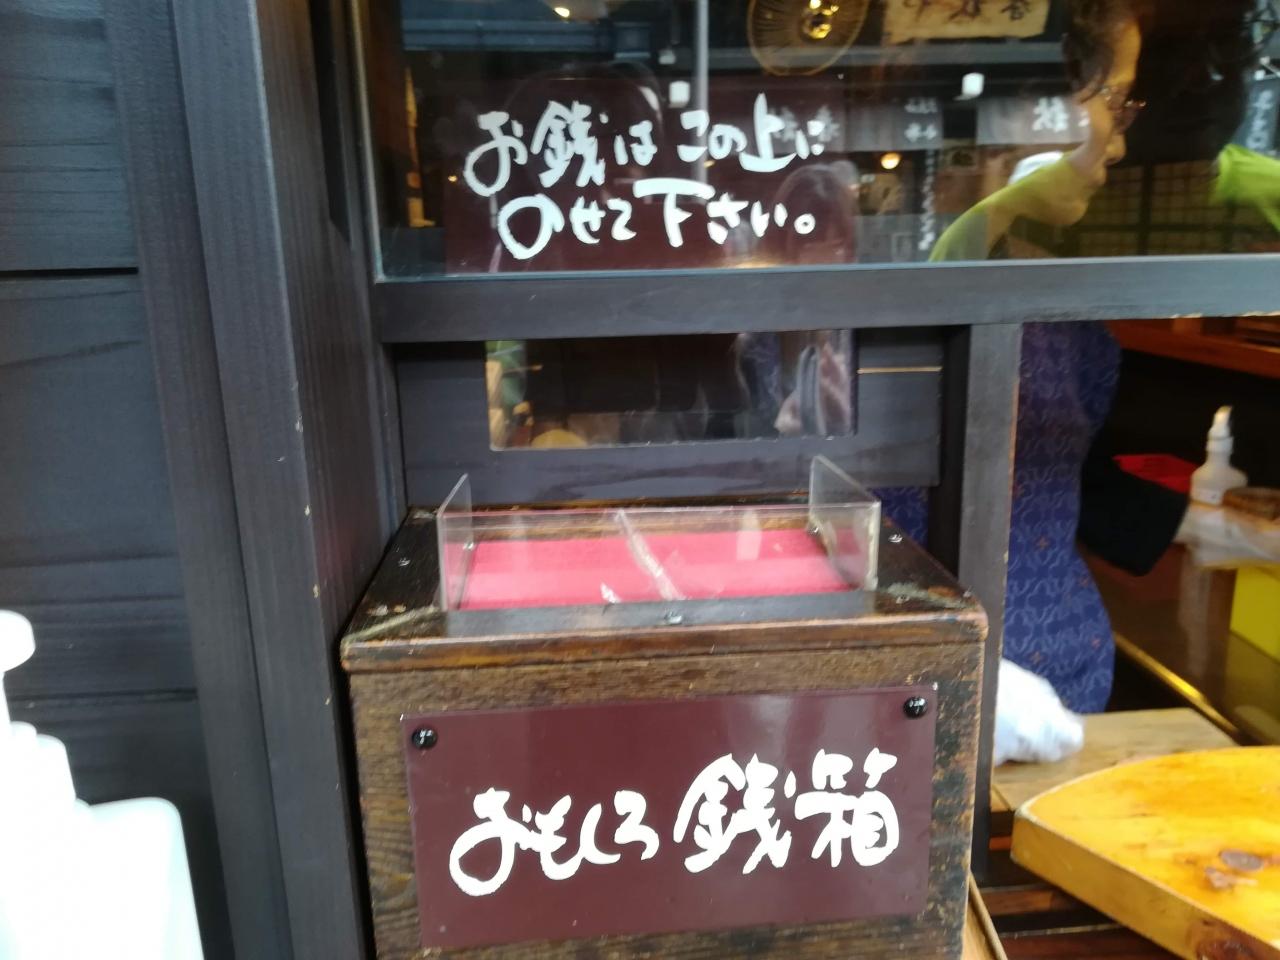 お銭はこの上に
のせて下さい。
おもしろ銭箱